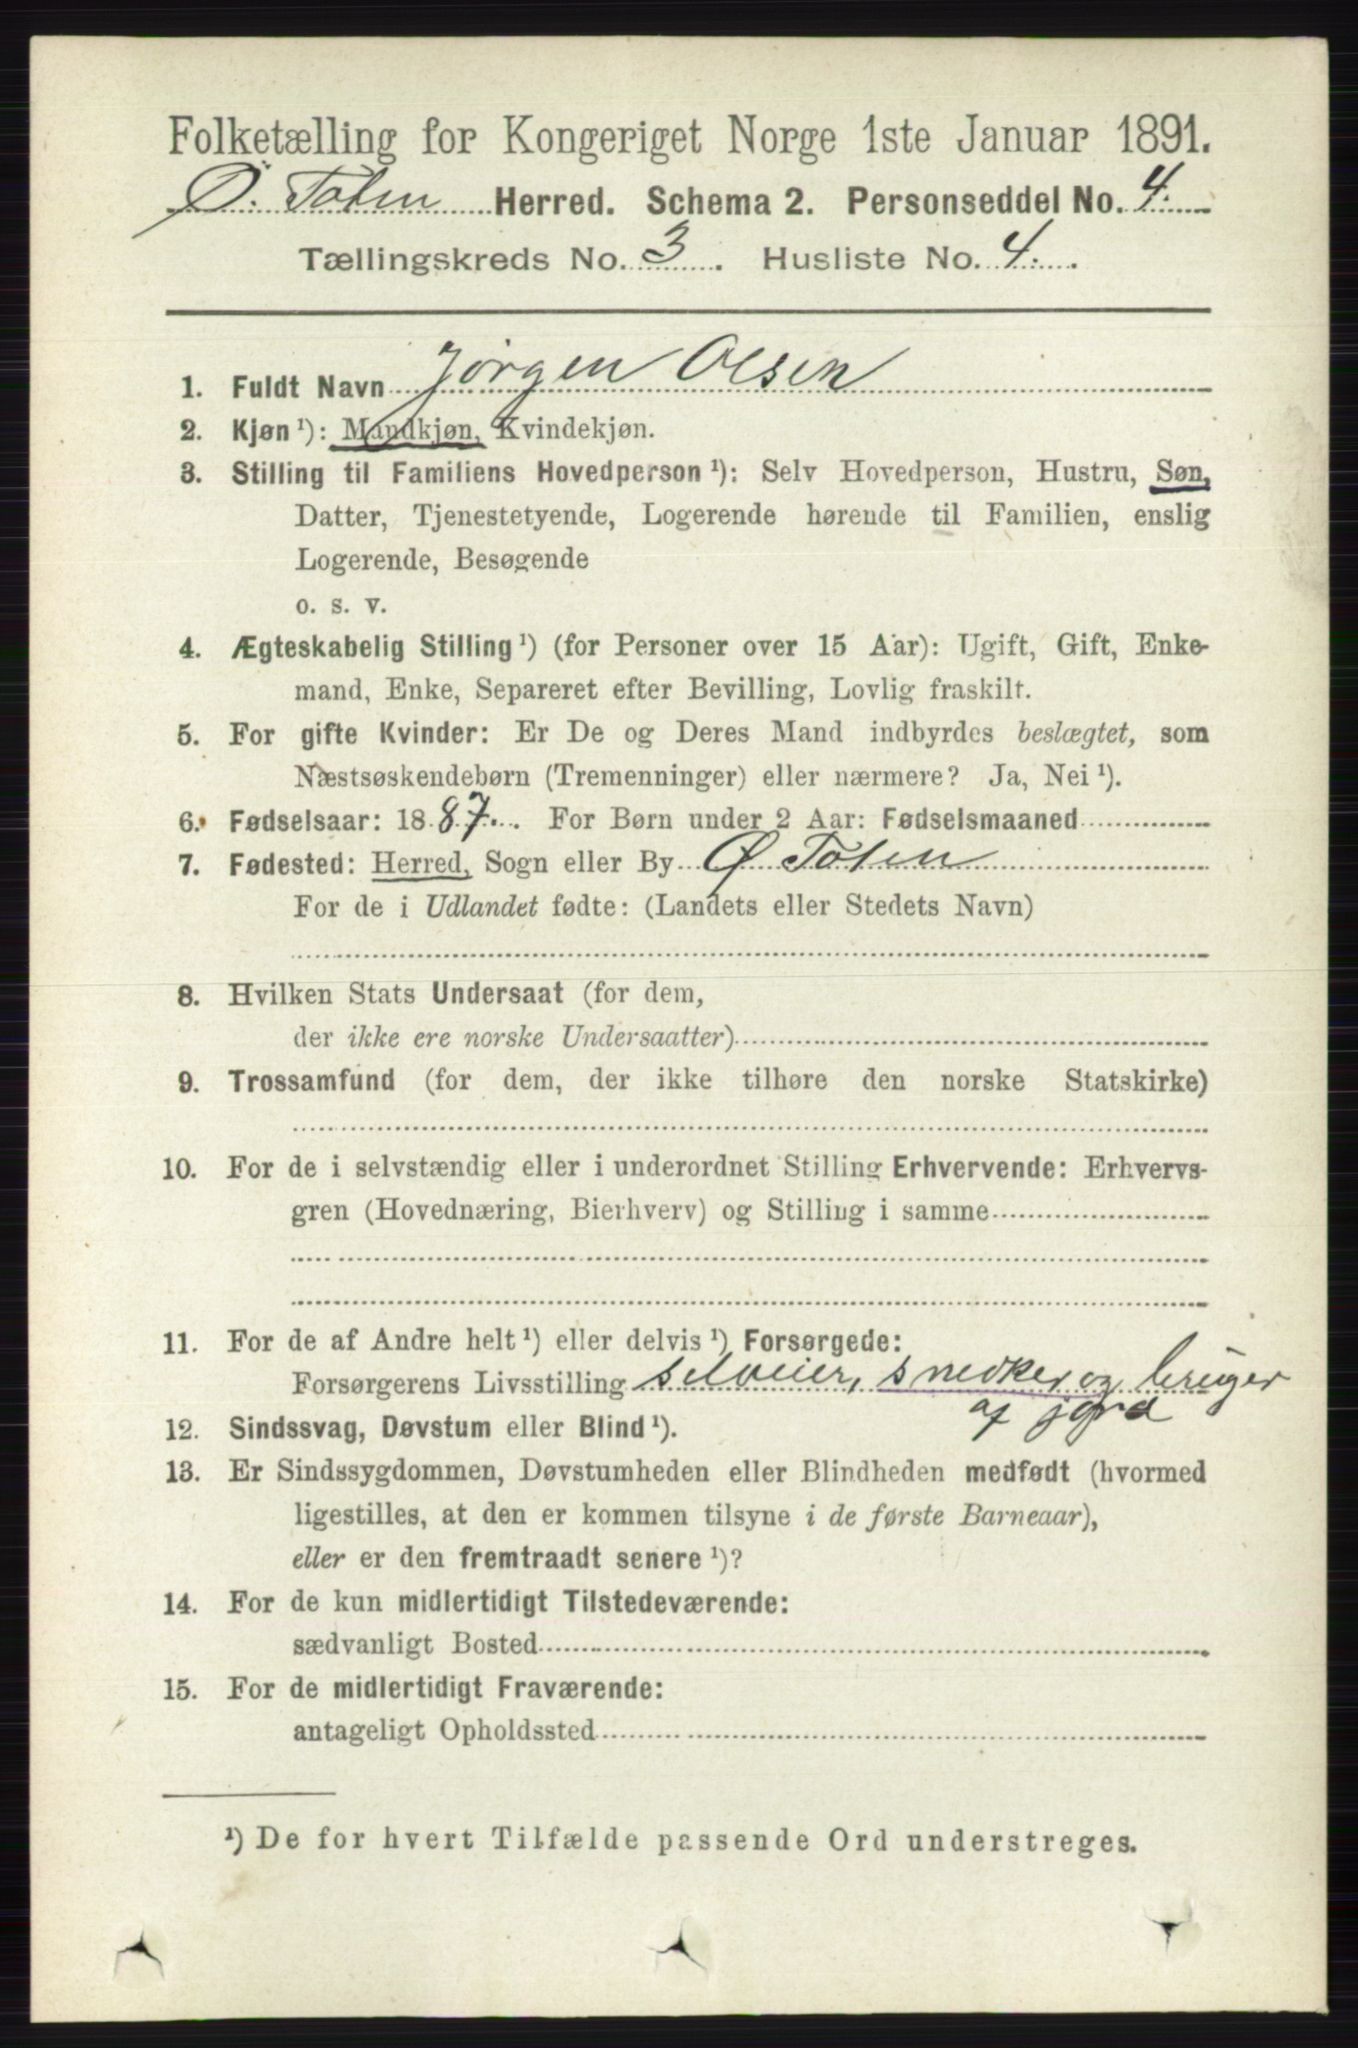 Folketælling for Kongeriget Norge 1ste Januar 1891.
Ø. Toten Herred. Schema 2. Personseddel No. 4.
Tællingskreds No. 3. Husliste No. 4.
1. Fuldt Navn Jørgen Olsen
2. Kjøn ¹): Mandkjøn, Kvindekjøn.
3. Stilling til Familiens Hovedperson ¹): Selv Hovedperson, Hustru, Søn,
Datter, Tjenestetyende, Logerende hørende til Familien, enslig
Logerende, Besøgende
o. s. v.
4. Ægteskabelig Stilling ¹) (for Personer over 15 Aar): Ugift, Gift, Enke-
mand, Enke, Separeret efter Bevilling, Lovlig fraskilt.
5. For gifte Kvinder: Er De og Deres Mand indbyrdes beslægtet, som
Næstsøskendebørn (Tremenninger) eller nærmere? Ja, Nei ¹).
6. Fødselsaar: 1887. For Børn under 2 Aar: Fødselsmaaned
7. Fødested: Herred, Sogn eller By Ø Toten
For de i Udlandet fødte: (Landets eller Stedets Navn)
8. Hvilken Stats Undersaat (for dem,
der ikke ere norske Undersaatter)
9. Trossamfund (for dem, der ikke tilhøre den norske Statskirke)
10. For de i selvstændig eller i underordnet Stilling Erhvervende: Erhvervs-
gren (Hovednæring, Bierhverv) og Stilling i samme
11. For de af Andre helt ¹) eller delvis ¹) Forsørgede:
Forsørgerens Livsstilling selveier, snedker og bruger
af jord
12. Sindssvag, Døvstum eller Blind ¹).
13. Er Sindssygdommen, Døvstumheden eller Blindheden medfødt (hvormed
ligestilles, at den er kommen tilsyne i de første Barneaar),
eller er den fremtraadt senere ¹)?
14. For de kun midlertidigt Tilstedeværende:
sædvanligt Bosted
15. For de midlertidigt Fraværende:
antageligt Opholdssted
¹) De for hvert Tilfælde passende Ord understreges.